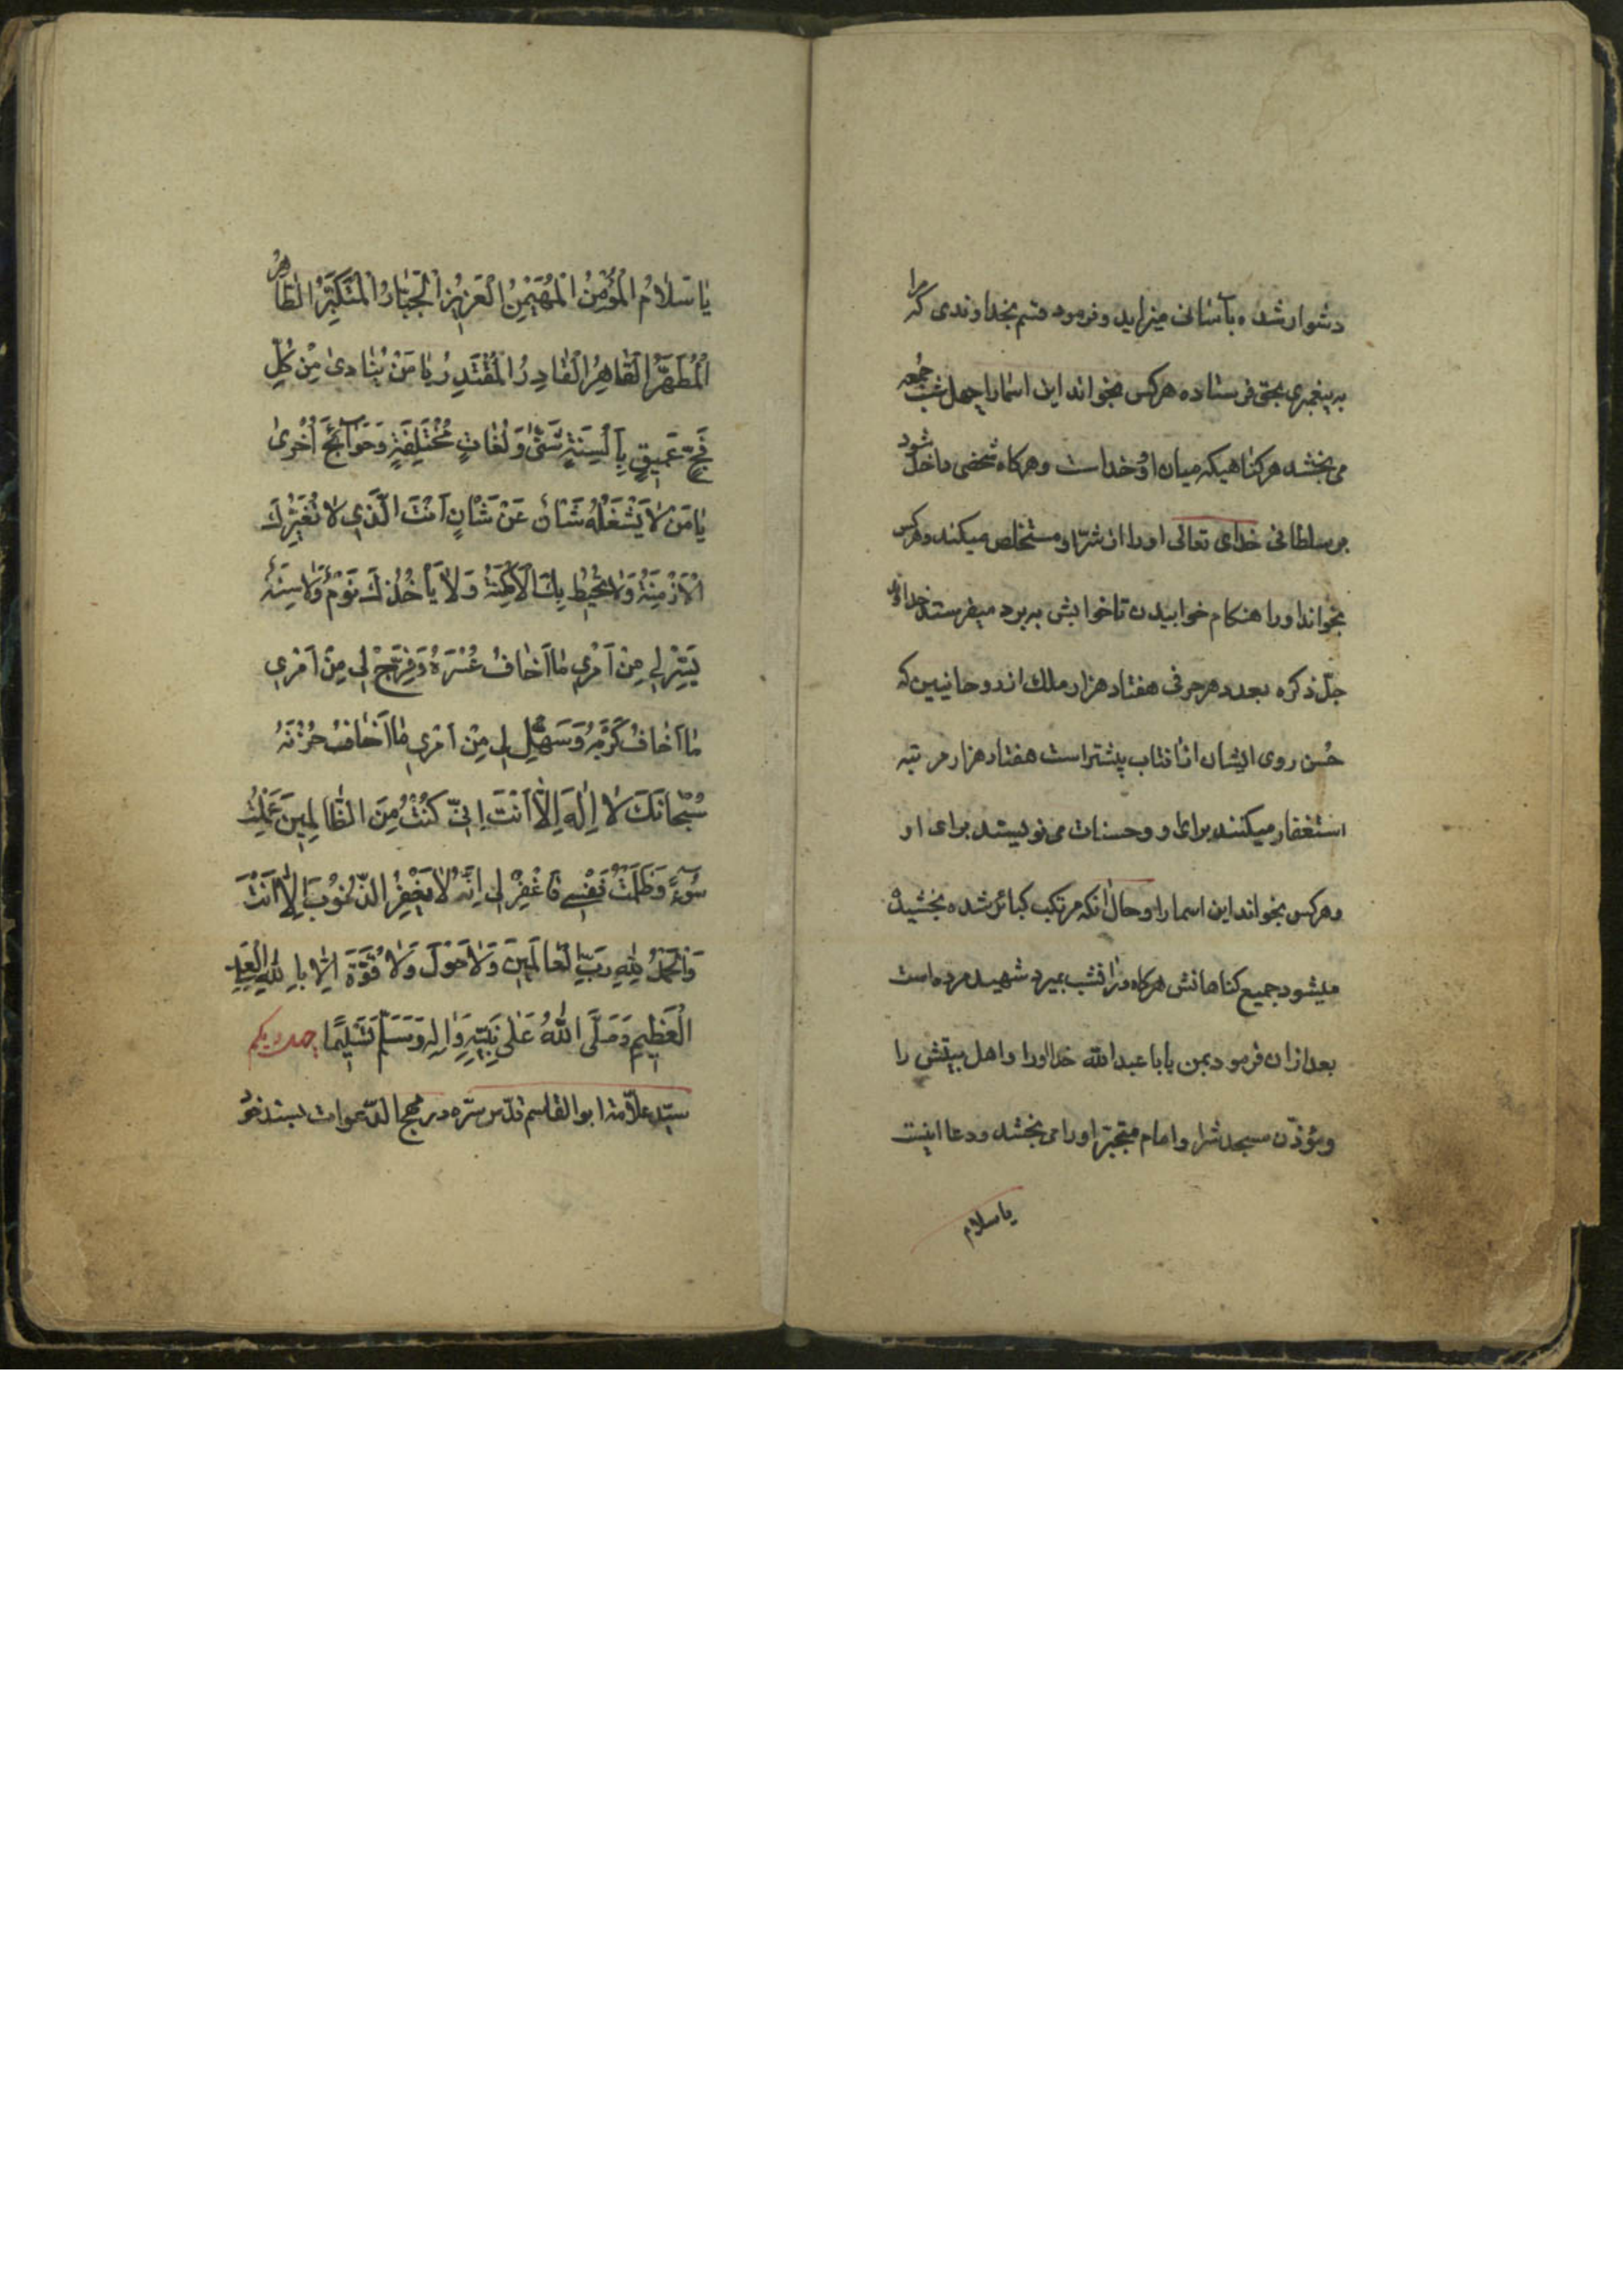 دشوار شده بآسانی میزاید و فرمود قسم بخداوندی که مرا
به پیغمبری بحق فرستاده هرکس بخواند این اسما را چهل شب جمعه
می بخشد هر کناهیکه میان او و خداست و هرکاه شخصی داخل شود
بر سلطانی خدای تعالی او را از شر او مستخلص میکند و هرکس
بخواند او را هنکام خوابیدن تا خوابش به برد میفرستد خداوند
جل ذکره بعدد هر حرفی هفتاد هزار ملک از روحانیین که
حُسن روی ایشان از آفتاب بیشتر است هفتاد هزار مرتبه
استغفار میکنند برای او و حسنات می نویسند برای او
و هرکس بخواند این اسما را و حال آنکه مرتکب کبائر شده بخشیده
میشود جمیع کناهانش هرکاه در آنشب بمیرد شهید مرده است
بعد از آن فرمود بمن یا با عبدالله خدا او را و اهل بیتش را
و مؤذن مسجدش را و امام او را می بخشد و دعا اینست
یا سلام
یٰا سَلٰامُ الْمُؤْمِنُ الْمُهَيْمِنُ الْعَزِيزُ الْجَبّٰارُ الْمُتَكَبِّرُ الطّٰاهِرُ
الْمُطَهَّرُ الْقٰاهِرُ الْقٰادِرُ الْمُقْتَدِرُ يٰا مَنْ يُنٰادىٰ مِنْ كُلِّ
فَجٍّ عَمِيقٍ بِاَلْسِنَةٍ شَتّىٰ وَ لُغٰاتٍ مُخْتَلِفَةٍ وَ حَوٰائِجَ اُخْرىٰ
يٰا مَنْ لٰا يَشْغَلُهُ شَأْنٌ عَنْ شَأْنٍ اَنْتَ الَّذِي لٰا تُغَيِّرُكَ
الْاَزْمِنَةُ وَ لٰا تُحِيطُ بِكَ الْاَمْكِنَةُ وَ لٰا يَأْخُذُكَ نَوْمٌ وَ لٰا سِنَةٌ
يَسِّرْ لِي مِنْ اَمْرِي مٰا اَخٰافُ عُسْرَهُ وَ فَرِّجْ لِي مِنْ اَمْرِي
مٰا اَخٰافُ كَرْبَهُ وَ سَهِّلْ لِي مِنْ اَمْرِي مٰا اَخٰافُ حُزْنَهُ
سُبْحٰانَكَ لٰا اِلٰهَ اِلّٰا اَنْتَ اِنِّي كُنْتُ مِنَ الظّٰالِمِينَ عَمِلْتُ
سُوءً وَ ظَلَمْتُ نَفْسِي فَاغْفِرْ لِي اِنَّهُ لٰا يَغْفِرُ الذُّنُوبَ اِلّٰا اَنْتَ
وَ الْحَمْدُ لِلّٰهِ رَبِّ الْعٰالَمِينَ وَ لٰا حَوْلَ وَ لٰا قُوَّةَ اِلّٰا بِاللّٰهِ الْعَلِيِّ
الْعَظِيمِ وَ صَلَّى اللّٰهُ عَلىٰ نَبِيِّهِ وَ اٰلِهِ وَ سَلَّمَ تَسْلِيمًا
سید علامة ابوالقاسم قدس سره در مهج الدعوات بسند خود